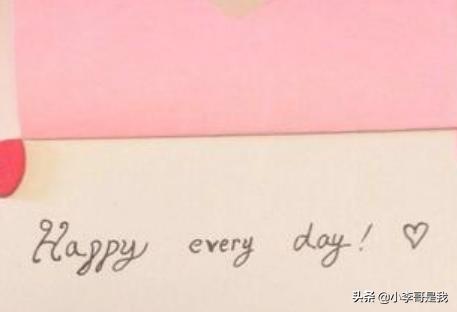 Happy every day! ♡
头条 @小李哥是我